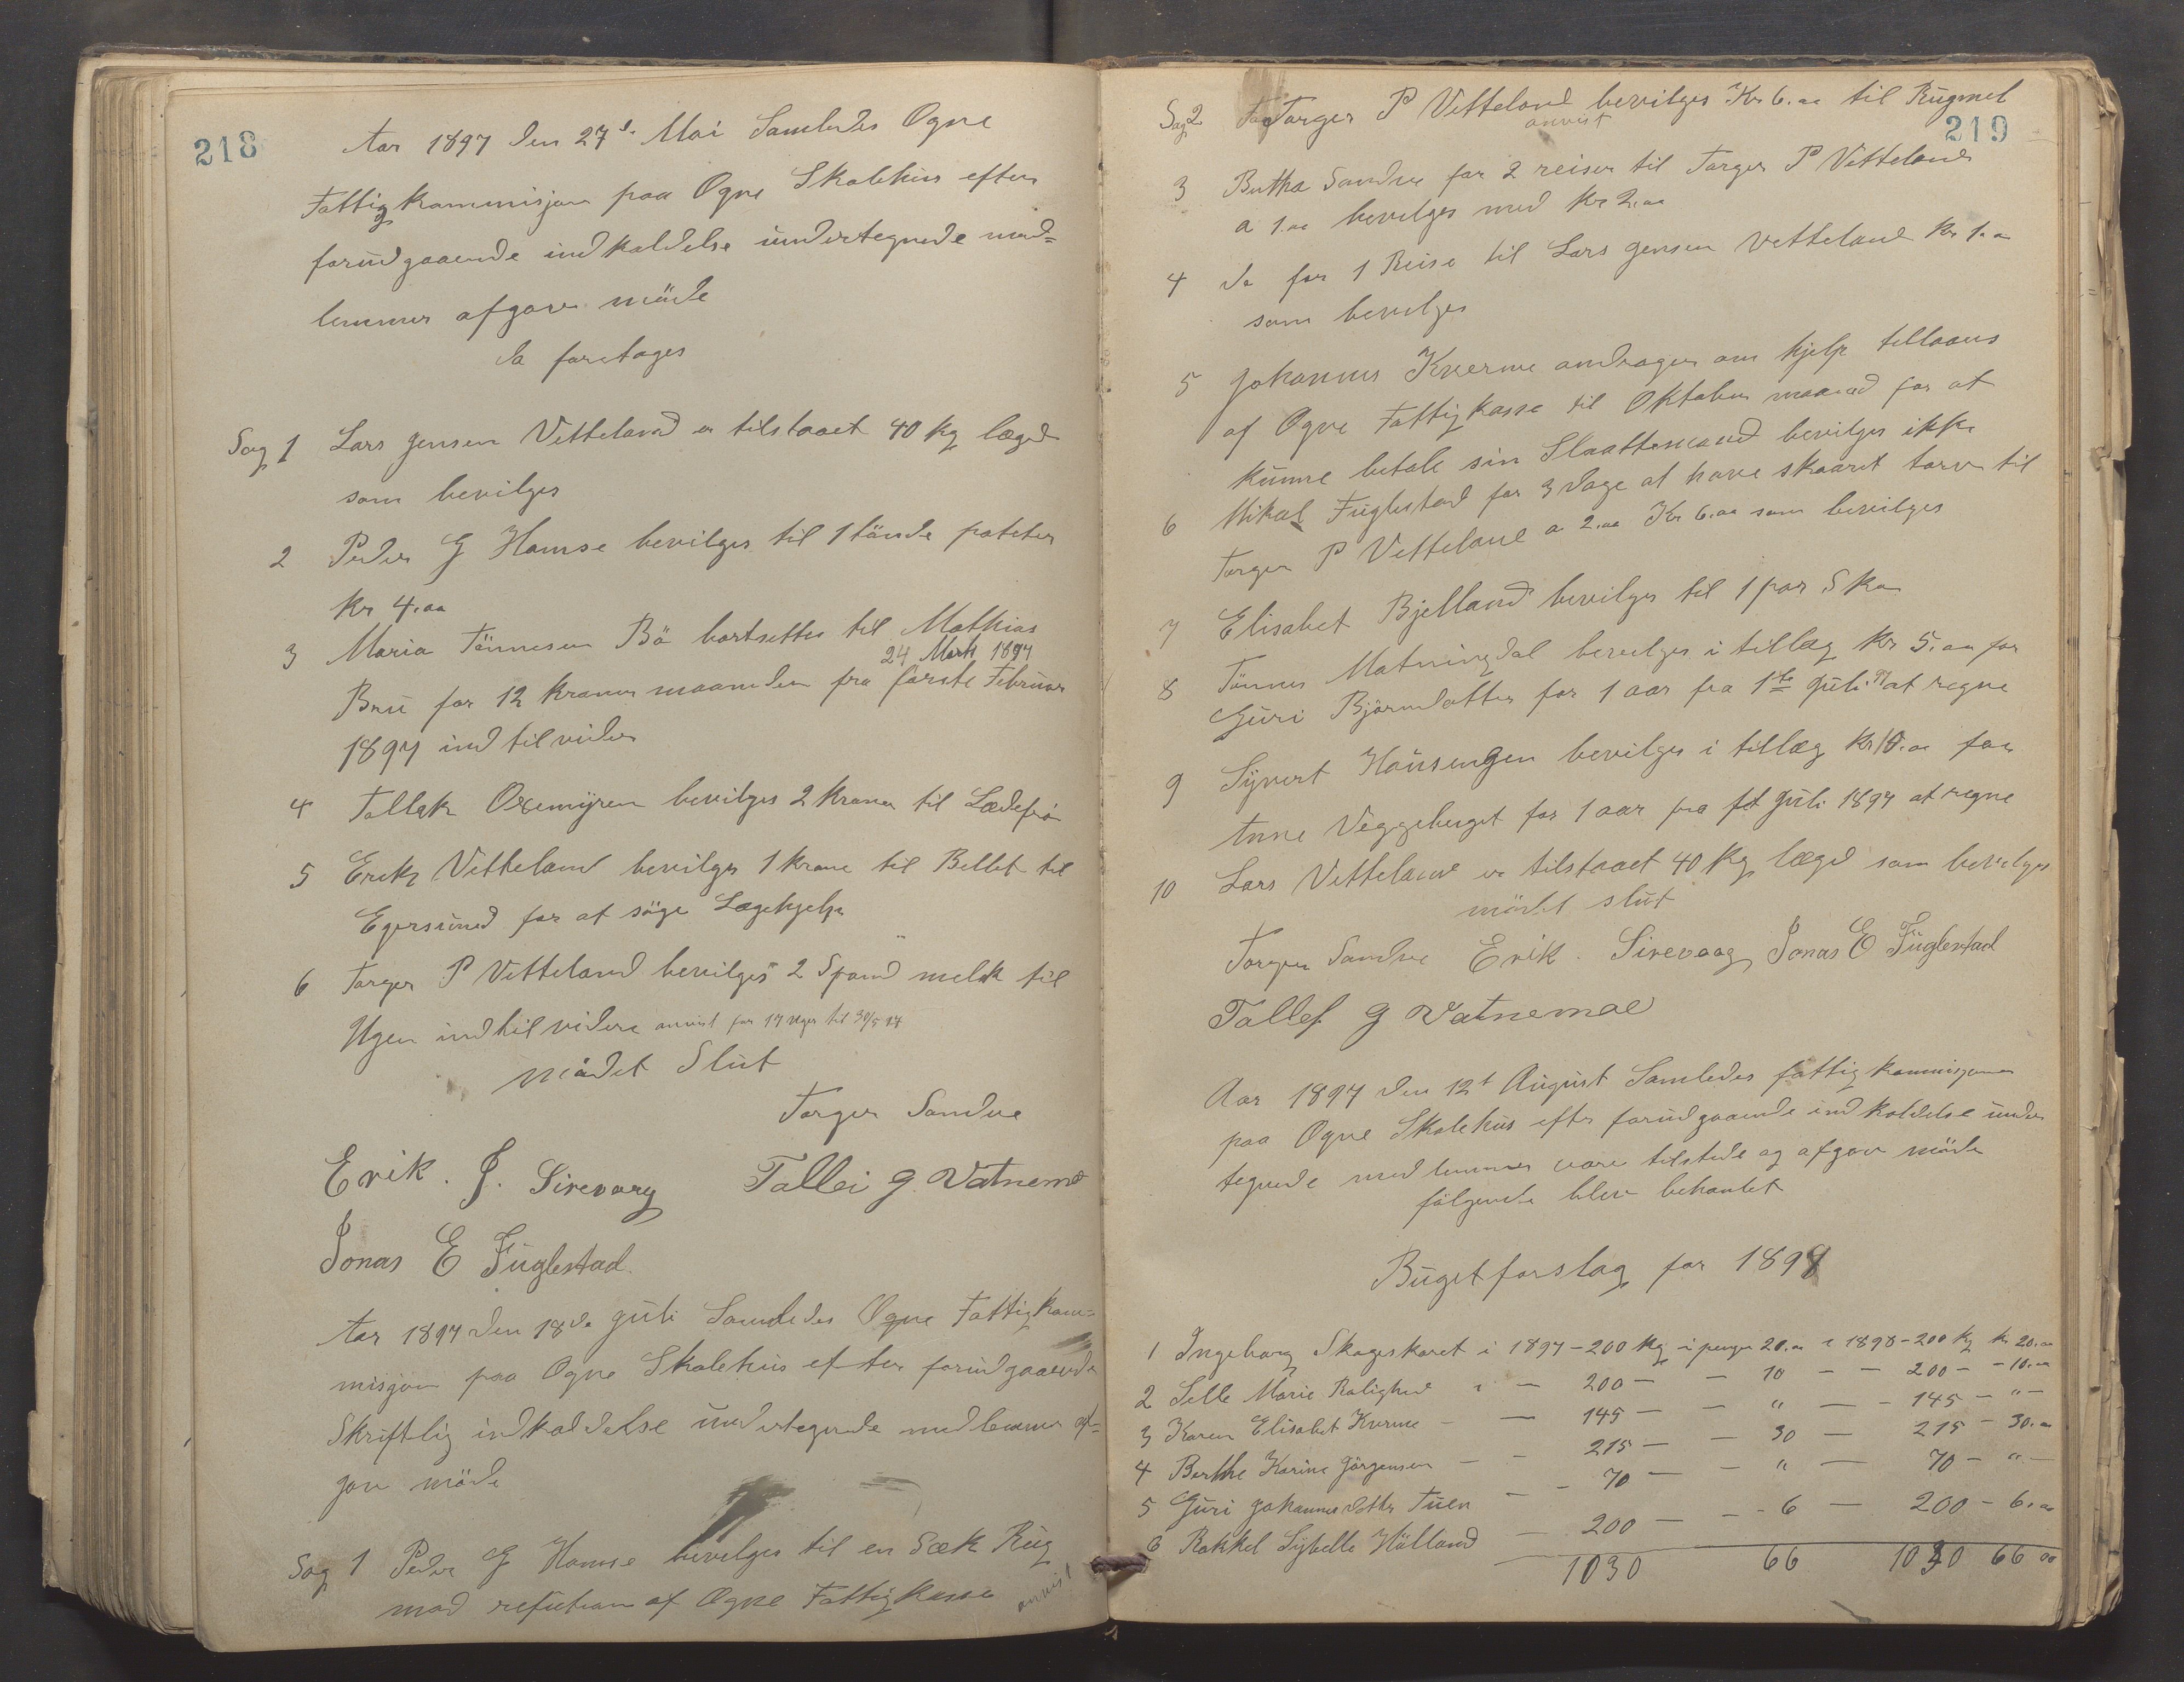 218
Aar 1897 den 27de Mai Samledes Ogne
Fattigkommisjon paa Ogne Skolehus efter
forudgaaende indkaldelse undertegnede med=
lemmer afgav møde
da foretages
Sag 1 Lars Jensen Vetteland er tilstaaet 40 kg lægd
som bevilges
2 Peder G Hamse bevilges til 1 tønde poteter
kr 4.00
3 Maria Tønnesen Bø bortsettes til Mathias
24 Marts 1897
Bru for 12 kroner maaneden fra første Februar
1897 indtil videre
4 Tollak Oxemyren bevilges 2 kroner til
5 Erik Vetteland bevilges 1 krone til Billet til
Egersund for at søge Lægehjelp
6 Torger P Vetteland bevilges 2 Spand melk til
Ugen indtil videre anvist for 14 Uger til 30/5 97
mødet Slut
Torger Sandve
Erik . J. Sirevaag Tallei G. Vatnemo
Jonas E Fuglestad.
Aar 1897 den 18de Juli Samledes Ogne Fattigkom=
misjon paa Ogne Skolehus efter forudgaaende
Skriftlig indkaldelse undertegnede medlemmer af=
gav møde
Sag 1 Peder G Hamse bevilges til en Sæk Rug
mod refution af Ogne Fattigkasse anvist
219
Sag 2 Torger P Vetteland bevilges Kr 6.00 til Rugmel
anvist
3 Bertha Sandve for 2 reiser til Torger P Vetteland
a 1.00 bevilges med Kr 2.00
4 do for 1 Reise til Lars Jensen Vetteland Kr 1.00
som bevilges
5 Johannes Kverme andrager om hjelp tillaans
af Ogne Fattigkasse til Oktober maaned for at
kunne betale sin Slaattemand bevilges ikke
6 Mikal Fuglestad for 3 dage at have skaaret torv til
Torger P Vetteland a 2.00 Kr 6.00 som bevilges
7 Elisabet Bjelland bevilges til 1 par Sko
8 Tønnes Matningdal bevilges i tillæg Kr 5.00 for
Guri Bjørnsdatter for 1 aar fra 1ste Juli 97 at regne
9 Syvert Hausengen bevilges i tillæg Kr 10.00 for
Anne Veggeberget for 1 aar fra 1st Juli 1897 at regne
10 Lars Vetteland er tilstaaet 40 Kg lægd som bevilges
mødet slut
Torger Sandve Erik . Sirevaag Jonas E Fuglestad
Tallef G Vatnemoe
Aar 1897 den 12t August Samledes fattigkommisjonen
paa Ogne Skolehus efter forudgaaende indkaldelse under
tegnede medlemmer vare tilstede og afgav møde
følgende blev behandlet
Bugetforslag for 1898
1 Ingeborg Skageskaret i 1897 - 200 kg i penge 20.00 i 1898 - 200 kg kr 20.00
2 Sille Marie Rolighed i — 200 — — 10 — — 200 — — 10.00
3 Karen Elisabet Kverme — — 145 — — " — — 145 — " —
4 Berthe Karine Jørgensen — — 215 — — 30 — 215 — 30.00
5 Guri Johannesdatter Tuen — — 70 — — " — 70 — " —
6 Rakkel Sybelle Hølland — 200 — — 6 — 200 — 6.00
1030 66 1030 66 00